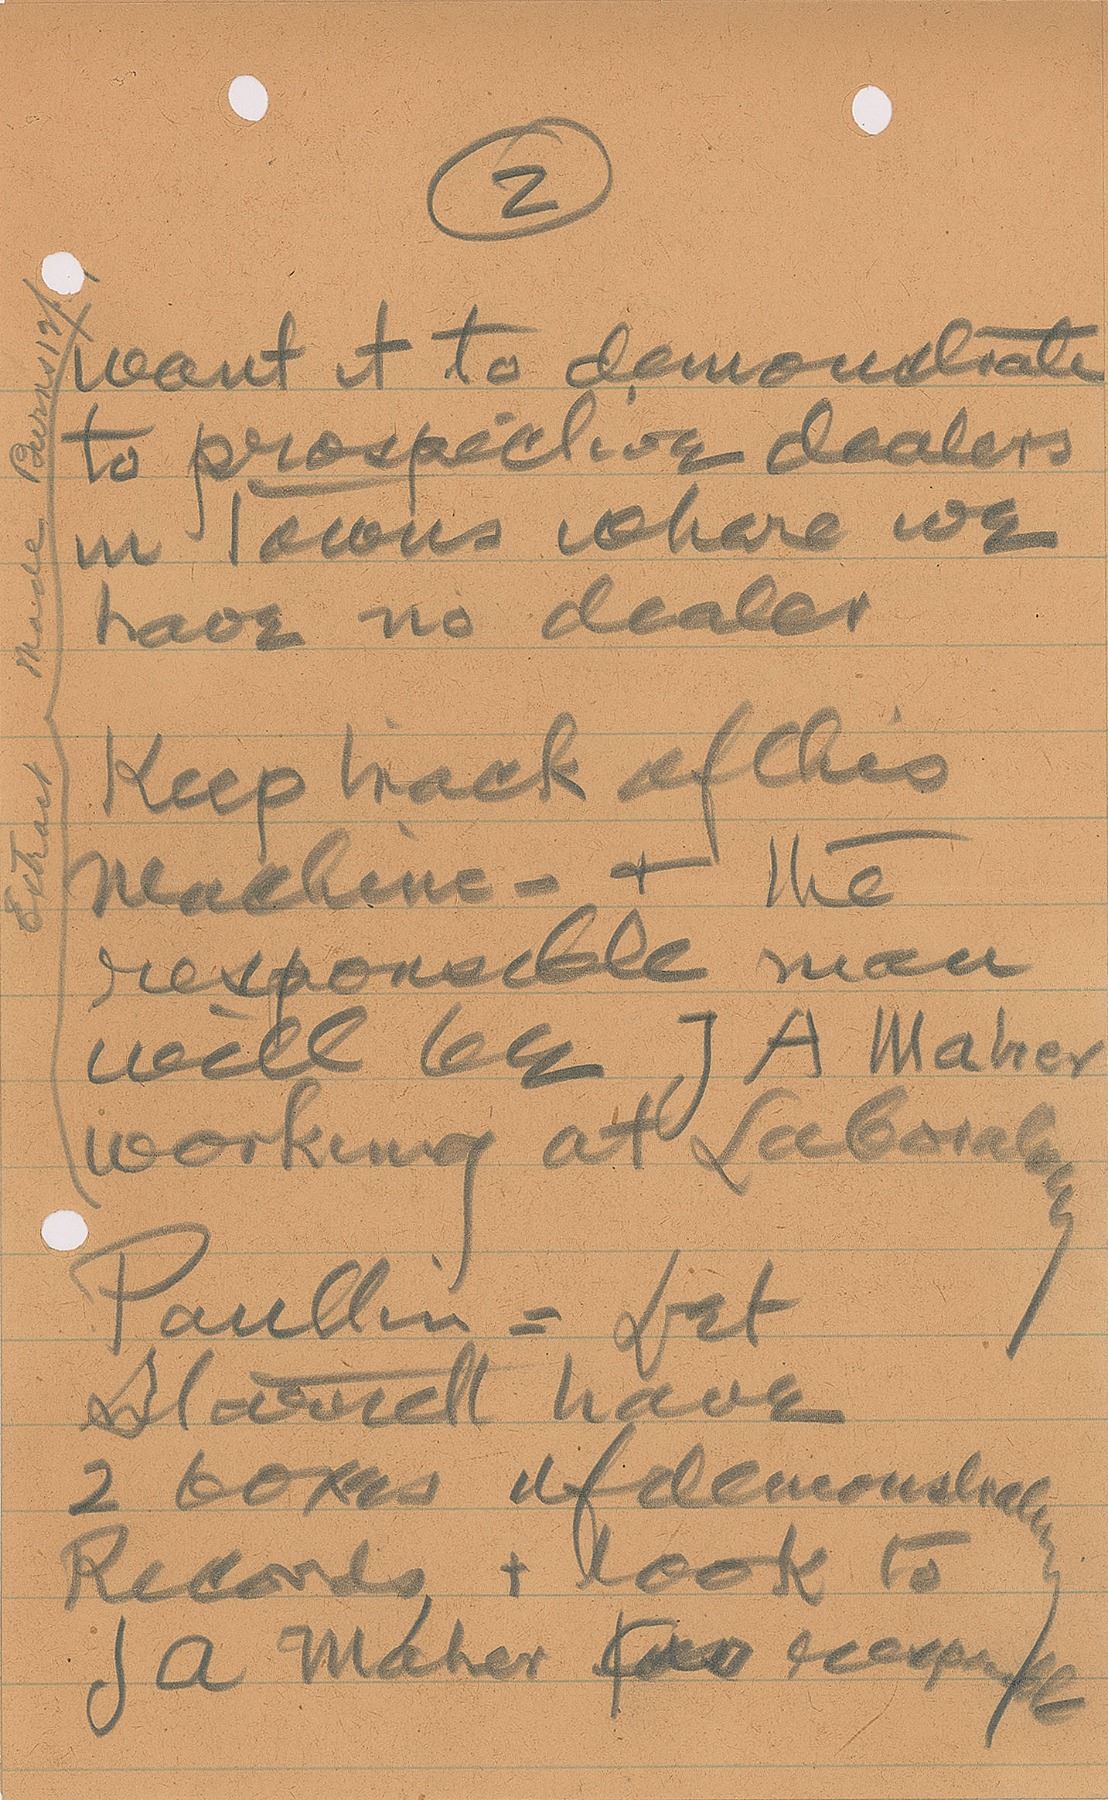 2
want it to demonstrate
to prospective dealers
in Towns where we
have no dealer
Keep track of this
machine - + the
responsible man
will be J A Maher
working at Laboratory
Paullin = Let
have
2 boxes of demonstrating
Records + look to
J A Maher for
Extract Made Burns 12/